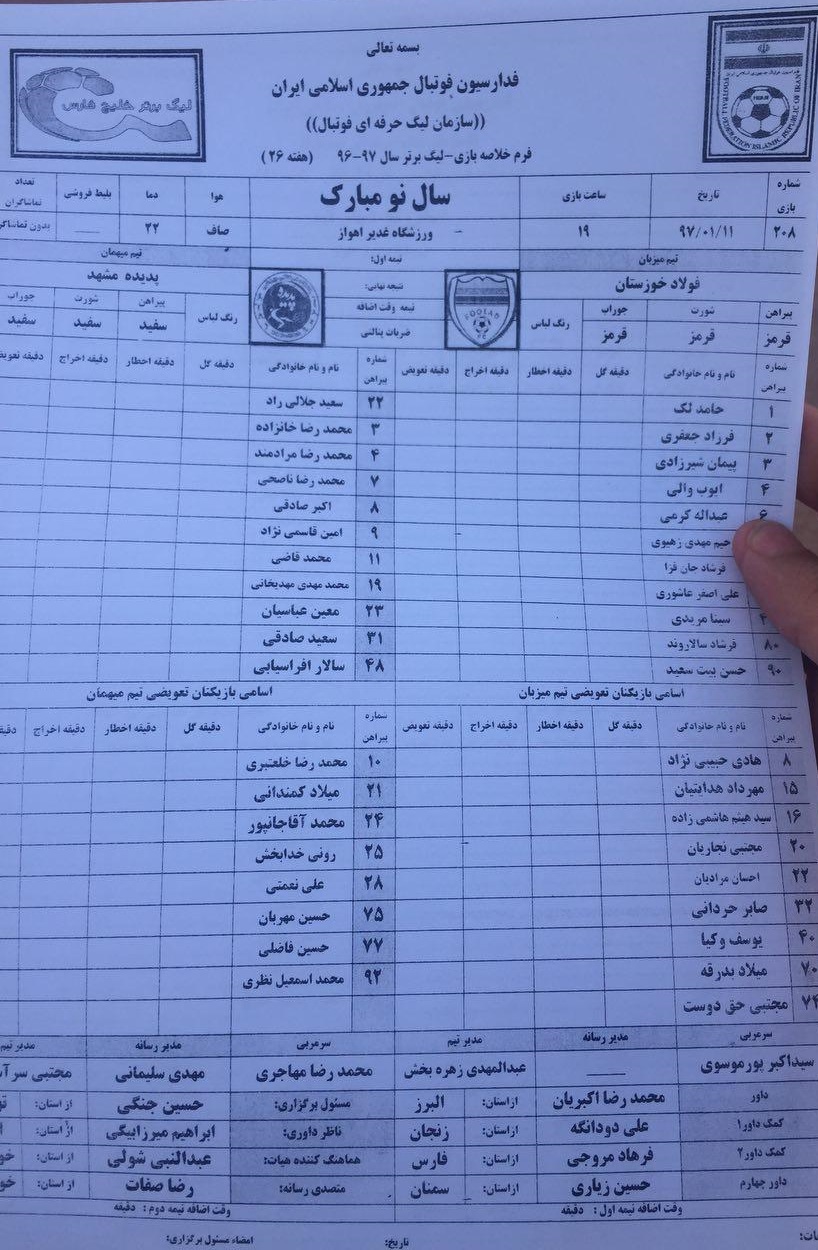 بسمه تعالی
فدراسیون فوتبال جمهوری اسلامی ایران
((سازمان لیگ حرفه ای فوتبال))
فرم خلاصه بازی-لیگ برتر سال ۹۷-۹۶ (هفته ۲۶)
لیگ برتر خلیج فارس
FOOTBALL FEDERATION ISLAMIC REP. OF IRAN
شماره بازی تاریخ ساعت بازی سال نو مبارک هوا دما بلیط فروشی تعداد تماشاگران
۲۰۸ ۹۷/۰۱/۱۱ ۱۹ ورزشگاه غدیر اهواز صاف ۲۲ بدون
تیم میزبان نیمه اول: تیم میهمان
فولاد خوزستان نتیجه نهایی: پدیده مشهد
پیراهن شورت جوراب رنگ لباس نیمه وقت اضافه رنگ لباس پیراهن شورت جوراب
قرمز قرمز قرمز FOOLAD FC ضربات پنالتی سفید سفید سفید
شماره پیراهن نام و نام خانوادگی دقیقه گل دقیقه اخطار دقیقه اخراج دقیقه تعویض شماره پیراهن نام و نام خانوادگی دقیقه گل دقیقه اخطار دقیقه اخراج دقیقه
۱ حامد لک ۲۲ سعید جلالی راد
۲ فرزاد جعفری ۳ محمد رضا خانزاده
۳ پیمان شیرزادی ۴ محمد رضا مرادمند
۴ ایوب والی ۷ محمد رضا ناصحی
۶ عبداله کرمی ۸ اکبر صادقی
مهدی زهیوی ۹ امین قاسمی نژاد
فرشاد جان فزا ۱۱ محمد قاضی
علی اصغر عاشوری ۱۹ محمد مهدی مهدیخانی
سینا مریدی ۲۳ معین عباسیان
۸۰ فرشاد سالاروند ۳۱ سعید صادقی
۹۰ حسن بیت سعید ۴۸ سالار افراسیابی
اسامی بازیکنان تعویضی تیم میزبان اسامی بازیکنان تعویضی تیم میهمان
شماره پیراهن نام و نام خانوادگی دقیقه گل دقیقه اخطار دقیقه اخراج دقیقه تعویض شماره پیراهن نام و نام خانوادگی دقیقه گل دقیقه اخطار دقیقه اخراج
۸ هادی حبیبی نژاد ۱۰ محمد رضا خلعتبری
۱۵ مهرداد هدایتیان ۲۱ میلاد کمندانی
۱۶ سید هیثم هاشمی زاده ۲۴ محمد آقاجانپور
۲۰ مجتبی نجاریان ۲۵ رونی خدابخش
۲۲ احسان مرادیان ۲۸ علی نعمتی
۳۲ صابر حردانی ۷۵ حسین مهربان
۴۰ یوسف وکیا ۷۷ حسین فاضلی
۷۰ میلاد بدرقه ۹۲ محمد اسمعیل نظری
۷۴ مجتبی حق دوست
سرمربی مدیر رسانه مدیر تیم سرمربی مدیر رسانه مدیر تیم
سیداکبر پورموسوی عبدالمهدی زهره بخش محمد رضا مهاجری مهدی سلیمانی مجتبی
داور محمد رضا اکبریان از استان: البرز مسئول برگزاری: حسین جنگی از استان:
کمک داور۱ علی دودانگه از استان: زنجان ناظر داوری: ابراهیم میرزابیگی از استان:
کمک داور۲ فرهاد مروجی از استان: فارس هماهنگ کننده هیات: عبدالنبی شولی از استان:
داور چهارم حسین زیاری از استان: سمنان متصدی رسانه: رضا صفات از استان:
وقت اضافه نیمه اول : دقیقه وقت اضافه نیمه دوم : دقیقه
تاریخ: امضاء مسئول برگزاری: